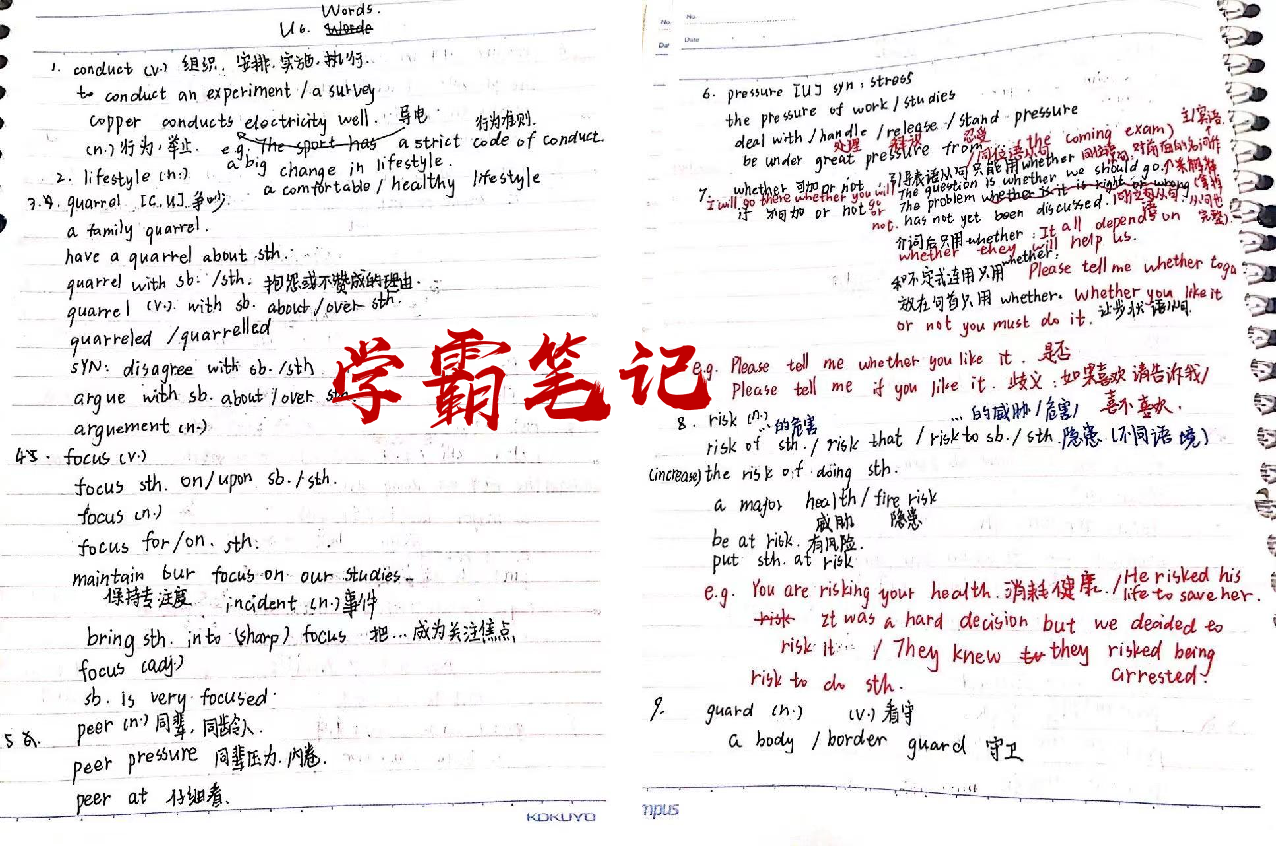 Words.
U6. Words
1. conduct (v.) 组织、安排、实施、执行.
to conduct an experiment / a survey
copper conducts electricity well. 导电 行为准则.
(n.) 行为,举止. e.g. The sport has a strict code of conduct.
a big change in lifestyle.
2. lifestyle (n.) a comfortable / healthy lifestyle
3. quarrel [C,U] 争吵
a family quarrel.
have a quarrel about sth.
quarrel with sb. /sth. 抱怨或不赞成的理由.
quarrel (v.) with sb. about / over sth.
quarreled / quarrelled
SYN: disagree with sb. /sth
argue with sb. about / over sth
arguement (n.)
4. focus (v.)
focus sth. on/upon sb. / sth.
focus (n.)
focus for/on. sth.
maintain our focus on our studies.
保持专注度 incident (n.) 事件
bring sth. into (sharp) focus 把...成为关注焦点
focus (adj.)
sb. is very focused.
5 peer (n.) 同辈, 同龄人.
peer pressure 同辈压力. 内卷.
peer at 仔细看.
KOKUYO
学霸笔记
No.
Date
6. pressure [U] syn: stress
the pressure of work / studies
deal with / handle / release / stand pressure
处理 释放 忍受
be under great pressure from (the coming exam)
7. whether 可加 or not 引导表语从句只能用whether
I will go there whether you will go or not.
if 不可加 or not
The question is whether we should go.
The problem whether it is right or wrong
has not yet been discussed.
介词后只用 whether: It all depends on
whether they will help us.
和不定式连用只用 whether: Please tell me whether to go.
放在句首只用 whether. Whether you like it
or not you must do it. 让步状语从句
e.g. Please tell me whether you like it. 是否
Please tell me if you like it. 歧义:如果喜欢请告诉我/
喜不喜欢.
8. risk (n.) ...的危害 ...的威胁/危害/
risk of sth. / risk that / risk to sb. / sth 隐患 (不同语境)
(increase) the risk of doing sth.
a major health / fire risk
威胁 隐患
be at risk. 有风险.
put sth. at risk
e.g. You are risking your health. 消耗健康. / He risked his
life to save her.
risk It was a hard decision but we decided to
risk it / They knew to they risked being
arrested.
risk to do sth.
9. guard (n.) (v.) 看守
a body / border guard 守卫
mpus